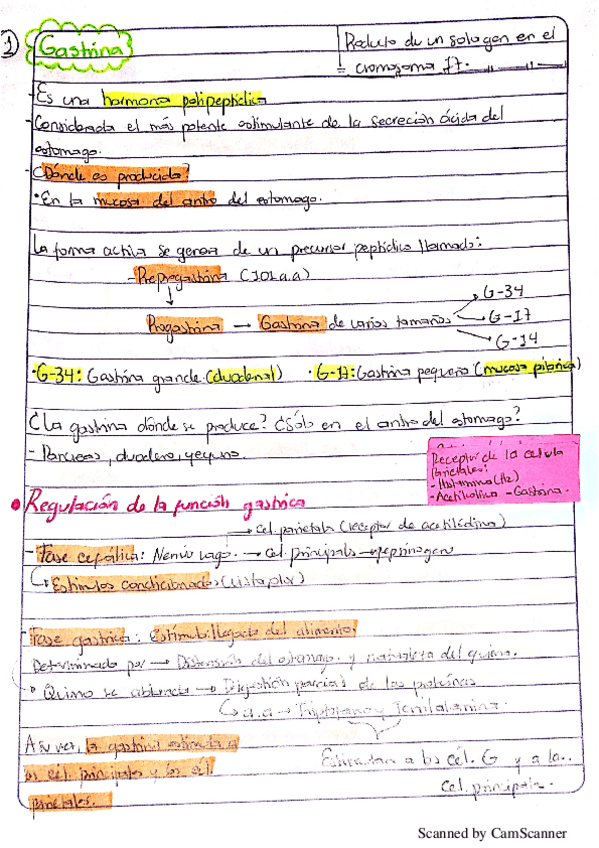 1) Gastrina
Producto de un solo gen en el
cromosoma 17.
- Es una hormona polipeptídica
- Considerada el más potente estimulante de la secreción ácida del
estomago.
- ¿Dónde es producida?
• En la mucosa del antro del estomago.
La forma activa se genera de un precursor peptídico llamado:
- Preprogastrina (101 a.a)
Progastrina → Gastrina de varios tamaños
G-34
G-17
G-14
• G-34: Gastrina grande (duodenal) • G-17: Gastrina pequeña (mucosa pilórica)
¿La gastrina dónde se produce? ¿Sólo en el antro del estomago?
- Pancreas, duodeno, yeyuno.
Receptor de la célula
parietales:
- Histamina (H2)
- Acetilcolina - Gastrina.
• Regulación de la función gastrica
→ cel. parietals (receptor de acetilcolina)
- Fase cefálica: Nervio vago. → cel. principals → pepsinogen
↳ Estimulos condicionados (vista, olor)
- Fase gastrica: llegada del alimento.
Determinado por → Distensión del estomago y naturaleza del quimo.
• Quimo se → Digestión parcial de las proteínas
↳ a.a → Triptofano y fenilalanina.
Estimulan a las cél. G y a la..
cel. principals.
A su vez, la gastrina estimula a
las cel. principals y las cél
parietales.
Scanned by CamScanner